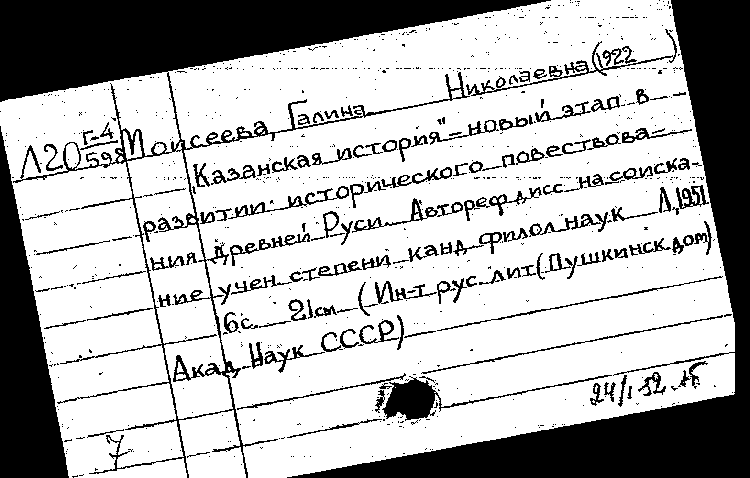 Л20 Г-4/598 Моисеева, Галина Николаевна (1922 )
„Казанская история" – новый этап в
развитии исторического повествова-
ния древней Руси. Автореф дисс на соиска-
ние учен степени канд филол наук Л, 1951
16с. 21см (Ин-т рус. лит (Пушкинск. дом)
Акад. Наук СССР)
24/I 52
7